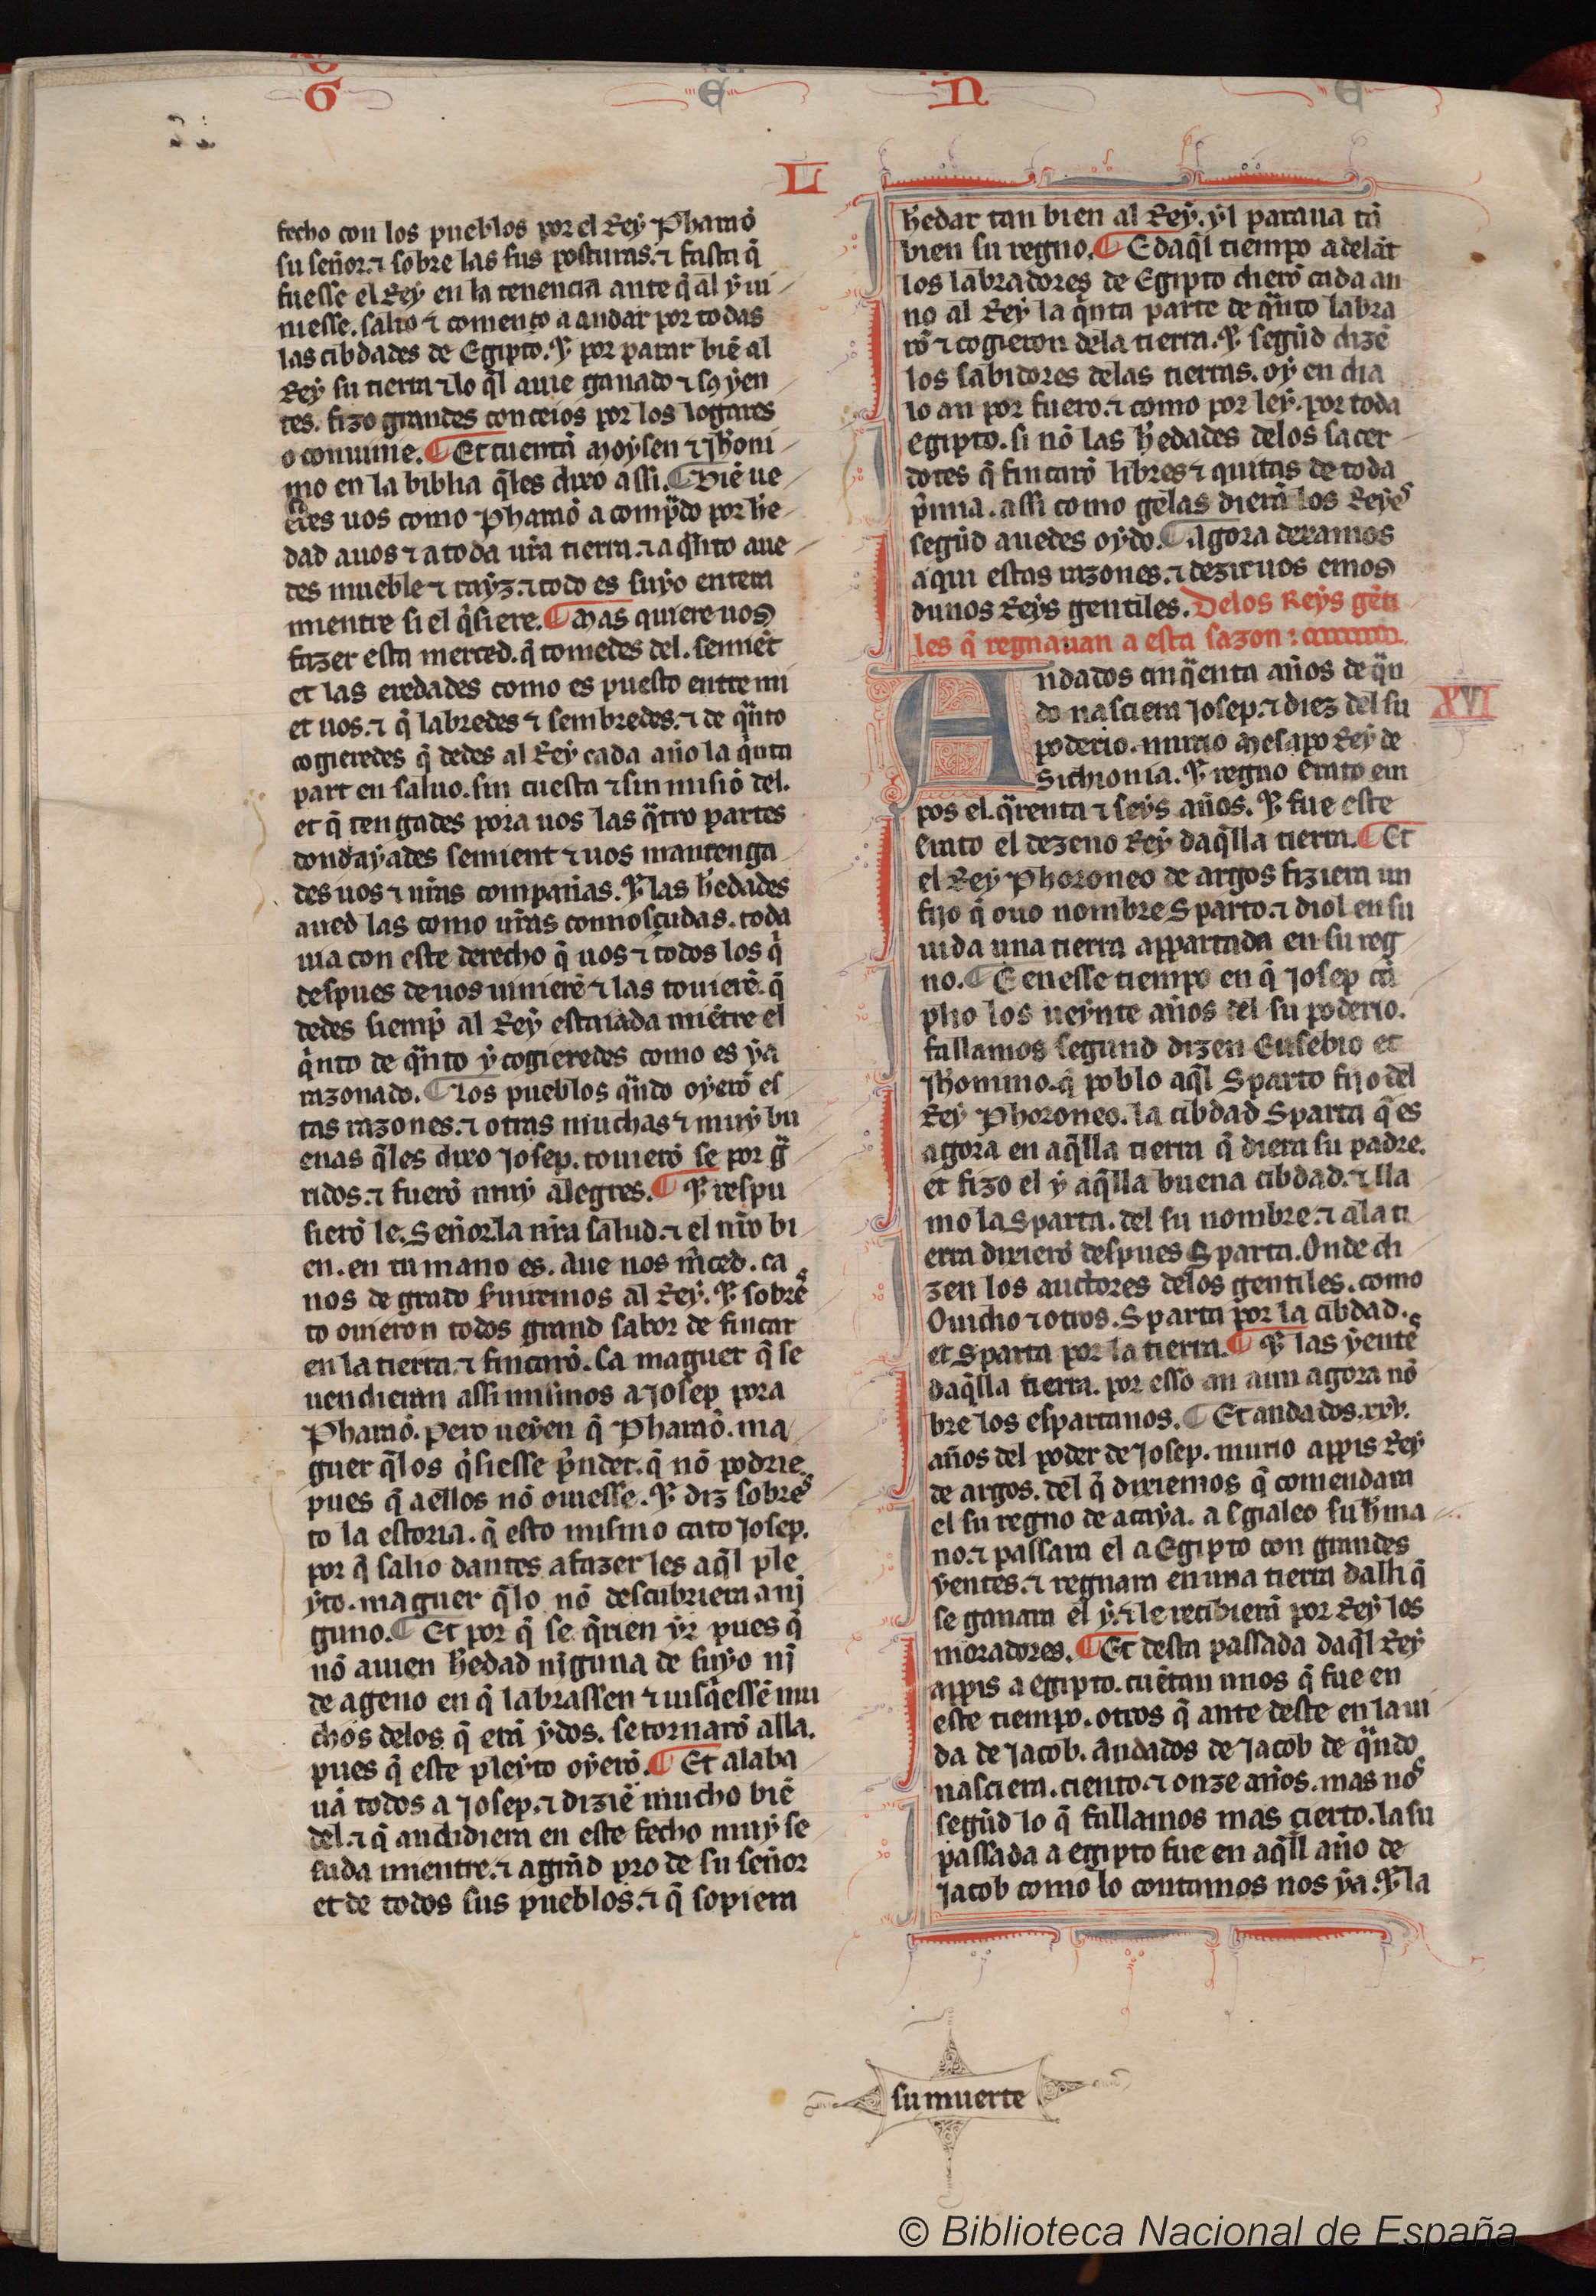 G E N E
L
fecho con los pueblos por el Rey Pharaõ
su señor. ⁊ sobre las sus posturas. ⁊ fasta q̃
fuesse el Rey en la tenencia ante q̃ al y ui
niesse. salio ⁊ començo a andar por todas
las cibdades de Egipto. ⁊ por parar biẽ al
Rey su tierra ⁊ lo q̃l auie ganado ⁊ sꝯ yen
tes. fizo grandes conceios por los logares
o conuinie. ¶ Et cuentã Moysen ⁊ Jh̃oni
mo en la biblia q̃les dixo assi. ¶ Biẽ ue
edes uos como Pharaõ a comp̃do por h̃e
dad auos ⁊ a toda ur̃a tierra. ⁊ a q̃nto aue
des mueble ⁊ rayz. ⁊ todo es suyo entera
mientre si el q̃siere. ¶ Mas quiere uos
fazer esta merced. q̃ tomedes del. semiẽt
et las eredades como es puesto entre mi
et uos. ⁊ q̃ labredes ⁊ sembredes. ⁊ de q̃nto
cogieredes q̃ dedes al Rey cada año la q̃nta
part en saluo. sin cuesta ⁊ sin misiõ del.
et q̃ tengades pora uos las q̃tro partes
dond ayades semient ⁊ uos mantenga
des uos ⁊ ur̃as compañas. ⁊ las h̃edades
aued las como ur̃as connosçudas. toda
uia con este derecho q̃ uos ⁊ todos los q̃
despues de uos uinierẽ ⁊ las touierẽ. q̃
dedes siemp̃ al Rey estaiada miẽtre el
q̃nto de q̃nto y cogieredes como es ya
razonado. ¶ Los pueblos q̃ndo oyerõ es
tas razones. ⁊ otras muchas ⁊ muy bu
enas q̃les dixo Josep. touierõ se por g̃
ridos. ⁊ fuerõ muy alegres. ¶ ⁊ respu
sierõ le. Señor. la nr̃a salud. ⁊ el nr̃o bi
en. en tu mano es. Aue nos m̃ced. ca
nos de grado s̃uiremos al Rey. ⁊ sobres
to ouieron todos grand sabor de fincar
en la tierra. ⁊ fincarõ. Ca maguer q̃ se
uendieran assi mismos a Josep pora
Pharaõ. pero ueyen q̃ Pharaõ. ma
guer q̃los q̃siesse p̃nder. q̃ nõ podrie.
pues q̃ a ellos nõ ouiesse. ⁊ diz sobres
to la estoria. q̃ esto mismo cato Josep.
por q̃ salio dantes a fazer les aq̃l ple
yto. maguer q̃lo nõ descubriera a nj
guno. ¶ Et por q̃ se q̃rien yr pues q̃
nõ auien h̃edad njguna de suyo nj
de ageno en q̃ labrassen ⁊ uisq̃essẽ mu
chos delos q̃ erã ydos. se tornarõ alla.
pues q̃ este pleyto oyerõ. ¶ Et alaba
uã todos a Josep. ⁊ diziẽ mucho biẽ
del. ⁊ q̃ anddidiera en este fecho muy se
suda mientre. ⁊ a grãd pro de su señor
et de todos sus pueblos. ⁊ q̃ sopiera
h̃edar tan bien al Rey. yl paraua tã
bien su regno. ¶ E daq̃l tiempo adelãt
los labradores de Egipto dierõ cada an
no al Rey la q̃nta parte de q̃nto labra
rõ ⁊ cogieron dela tierra. ⁊ segũd dizẽ
los sabidores delas tierras. oy en dia
lo an por fuero. ⁊ como por ley. por toda
egipto. si nõ las h̃edades delos sacer
dotes q̃ fincarõ libres ⁊ quitas de toda
p̃mia. assi como gelas dierã los Reyes
segũd auedes oydo. ¶ Agora dexamos
aqui estas razones. ⁊ dezir uos emos
dunos Reys gentiles. Delos Reys gẽti
les q̃ regnauan a esta sazon:
XVI
Andados cinq̃enta años de q̃n
do nasciera Josep. ⁊ diez del su
poderio. murio Mesapo Rey de
Sichionia. ⁊ regno Erato em
pos el. q̃renta ⁊ seys años. ⁊ fue este
Erato el dezeno Rey daq̃lla tierra. ¶ Et
el Rey Phoroneo de argos fiziera un
fijo q̃ ouo nombre Sparto. ⁊ diol en su
uida una tierra appartada en su reg
no. ¶ E en esse tiempo en q̃ Josep cũ
plio los ueynte años del su poderio.
fallamos segund dizen Eusebio et
Jh̃onimo. q̃ poblo aq̃l Sparto fijo del
Rey Phoroneo. la cibdad Sparta q̃ es
agora en aq̃lla tierra q̃ diera su padre.
et fizo el y aq̃lla buena cibdad. ⁊ lla
mo la Sparta. del su nombre. ⁊ ala ti
erra dixierõ despues Sparta. Onde di
zen los auctores delos gentiles. como
Ouidio ⁊ otros. Sparta por la cibdad.
et Sparta por la tierra. ¶ ⁊ las yentes
daq̃lla tierra. por esso an aun agora nõ
bre los espartanos. ¶ Et andados. xxv.
años del poder de Josep. murio appis Rey
de argos. del q̃ dixiemos q̃ comendara
el su regno de acaya. a Egialeo su h̃ma
no. ⁊ passara el a Egipto con grandes
yentes. ⁊ regnara en una tierra dalli q̃
se ganara el y. ⁊ le recibierã por Rey los
moradores. ¶ Et desta passada daq̃l Rey
appis a egipto. cuẽtan unos q̃ fue en
este tiempo. otros q̃ ante deste en la ui
da de Jacob. Andados de Jacob de q̃ndo
nasciera. ciento. ⁊ onze años. mas nos
segũd lo q̃ fallamos mas cierto. la su
passada a egipto fue en aq̃ll año de
Jacob como lo contamos nos ya. ⁊ la
su muerte
© Biblioteca Nacional de España